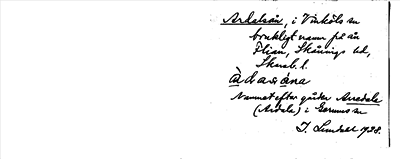 Ardalaån, i Vinköls sn
brukligt namn på ån
Flian, Skånings hd,
Skarab. l.
àdaɷána
Namnet efter gården Arredala
(Ardala) i Gerums sn
I. Lundahl 1928.